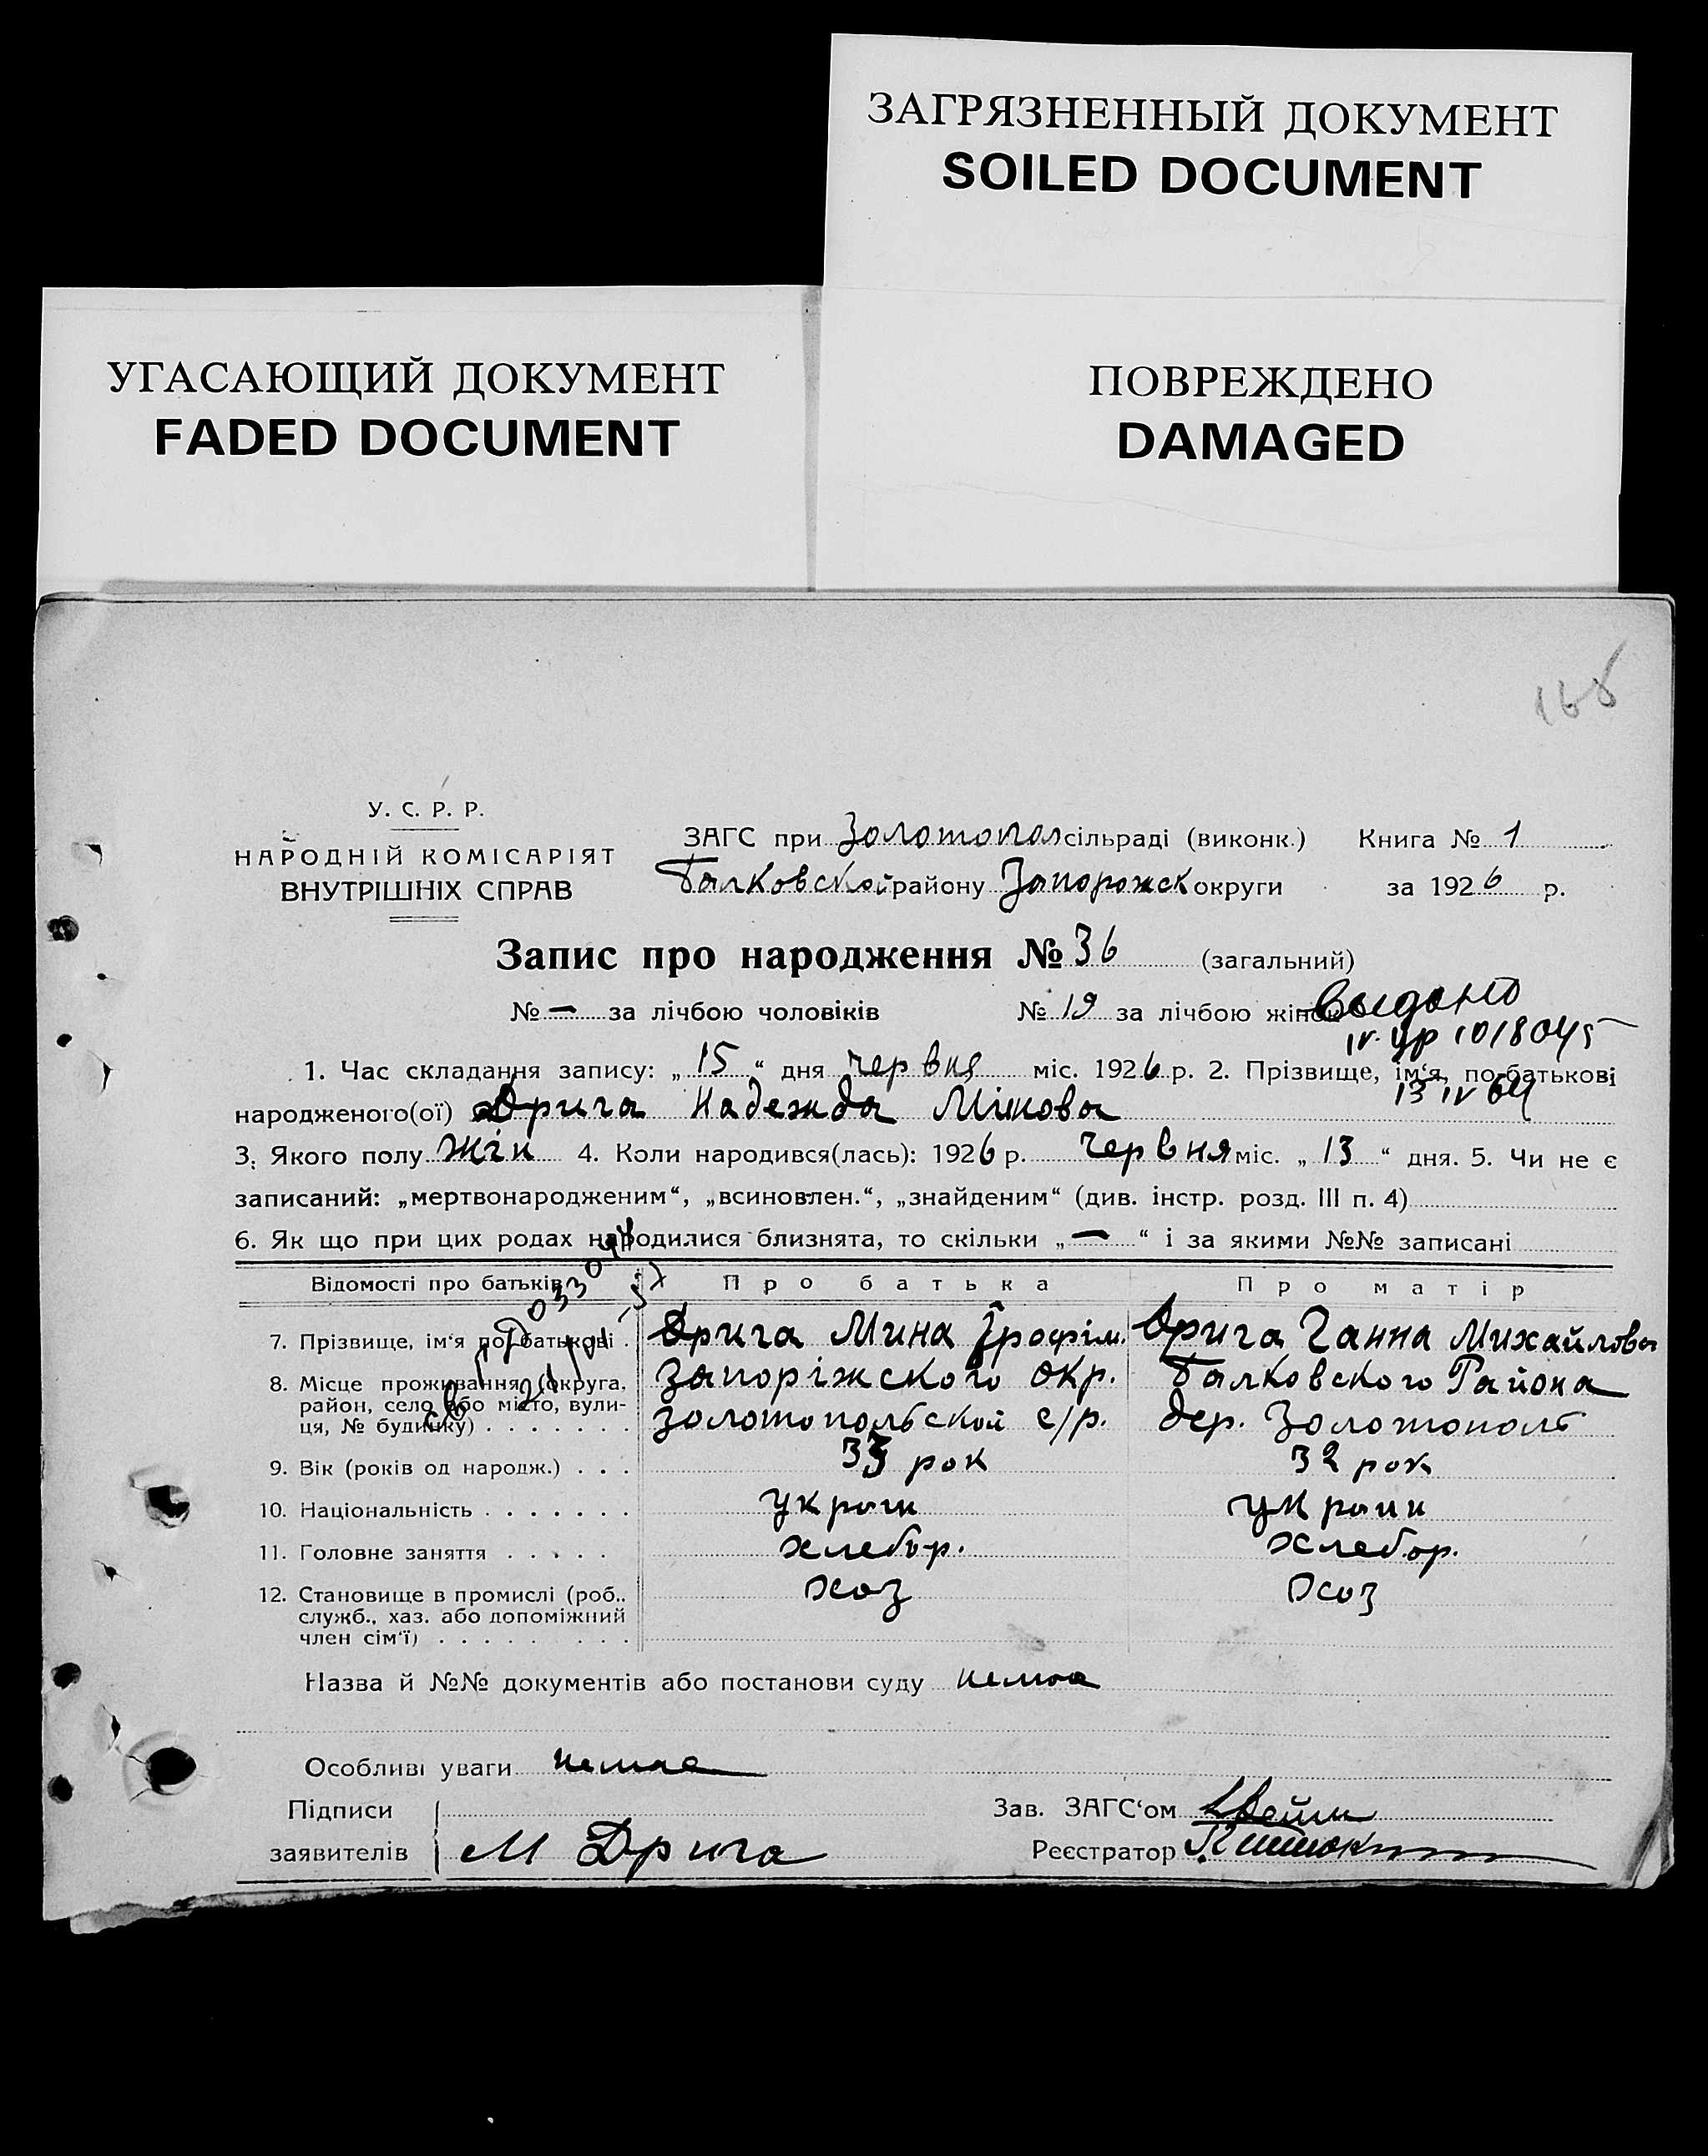 ЗАГРЯЗНЕННЫЙ ДОКУМЕНТ
SOILED DOCUMENT
УГАСАЮЩИЙ ДОКУМЕНТ
FADED DOCUMENT
ПОВРЕЖДЕНО
DAMAGED
У. С. Р. Р.
НАРОДНІЙ КОМІСАРІЯТ
ВНУТРІШНІХ СПРАВ
ЗАГС при Золотопол сільраді (виконк.) Книга № 1
Балковской району Запорожск округи за 1926 р.
Запис про народження № 36 (загальний)
№ — за лічбою чоловіків № 19 за лічбою жінок Выдано
IV-УР 1018045
1. Час складання запису: „ 15 “ дня червня міс. 1926 р. 2. Прізвище, ім‘я, по-батькові
13 IV 64
народженого(ої) Дрига Надежда Мінова
3. Якого полу жін 4. Коли народився(лась): 1926 р. червня міс. „ 13 “ дня. 5. Чи не є
записаний: „мертвонародженим“, „всиновлен.“, „знайденим“ (див. інстр. розд. III п. 4)
6. Як що при цих родах народилися близнята, то скільки „ — “ і за якими №№ записані
Відомості про батьків Про батька Про матір
7. Прізвище, ім‘я по-батькові . Дрига Мина Трофім. Дрига Ганна Михайлова
8. Місце проживання (округа, Запоріжского окр. Балковского Района
район, село або місто, вули-
ця, № будинку) . . . . . . . Золотопольской с/р. дер. Золотополь
9. Вік (років од народж.) . . . 33 рок 32 рок
10. Національність . . . . . . . украин украин
11. Головне заняття . . . . . хлебор. хлебор.
12. Становище в промислі (роб., хоз хоз
служб., хаз. або допоміжний
член сім‘ї) . . . . . . . . .
Назва й №№ документів або постанови суду немае
Особливі уваги немае
Підписи Зав. ЗАГС‘ом
заявителів М Дрига Реєстратор